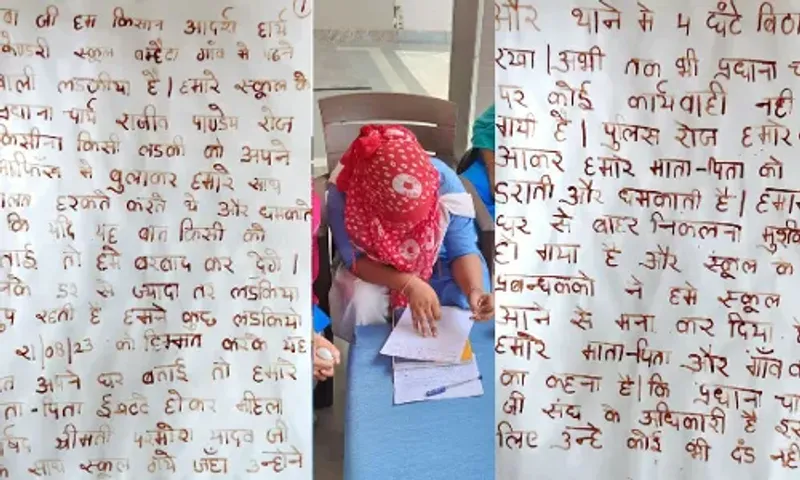 बा जी हम किसान आदर्श हायर
सेकेण्डरी स्कूल बम्हैटा गाँव मे पढने
वाली लडकीया है | हमारे स्कूल के
प्रधाना चार्य राजीव पाण्डेय रोज
किसीना किसी लडकी को अपने
ऑफिस मे बुलाकर हमारे साथ
गलत हरकते करते थे और धमकाते
कि यदि यह बात किसी को
बताई तो हमे बरबाद कर देगे |
इनके डर से ज्यादा तर लडकिया
चुप रहती है हमने कुछ लडकियो
21/08/23 को हिम्मत करके यह
बात अपने घर बताई तो हमारे
माता-पिता ईकटठे होकर महिला
पार्षद श्रीमती परमोश यादव जी
के साथ स्कूल गये जँहा उन्होने
और थाने मे 4 घंटे बिठा
रखा | अभी तक भी प्रधाना चा
पर कोई कार्यवाही नही
गयी है | पुलिस रोज हमारे
आकर हमारे माता-पिता को
डराती और धमकाती है | हमा
घर से बाहर निकलना मुश्कि
हो गया है और स्कूल के
प्रबन्धकको ने हमे स्कूल
आने से मना कर दिया है
हमारे माता-पिता और गाँव व
का कहना है | कि प्रधाना चा
जी संघ के अधिकारी है इस
लिए उन्हे कोई भी दंड नही